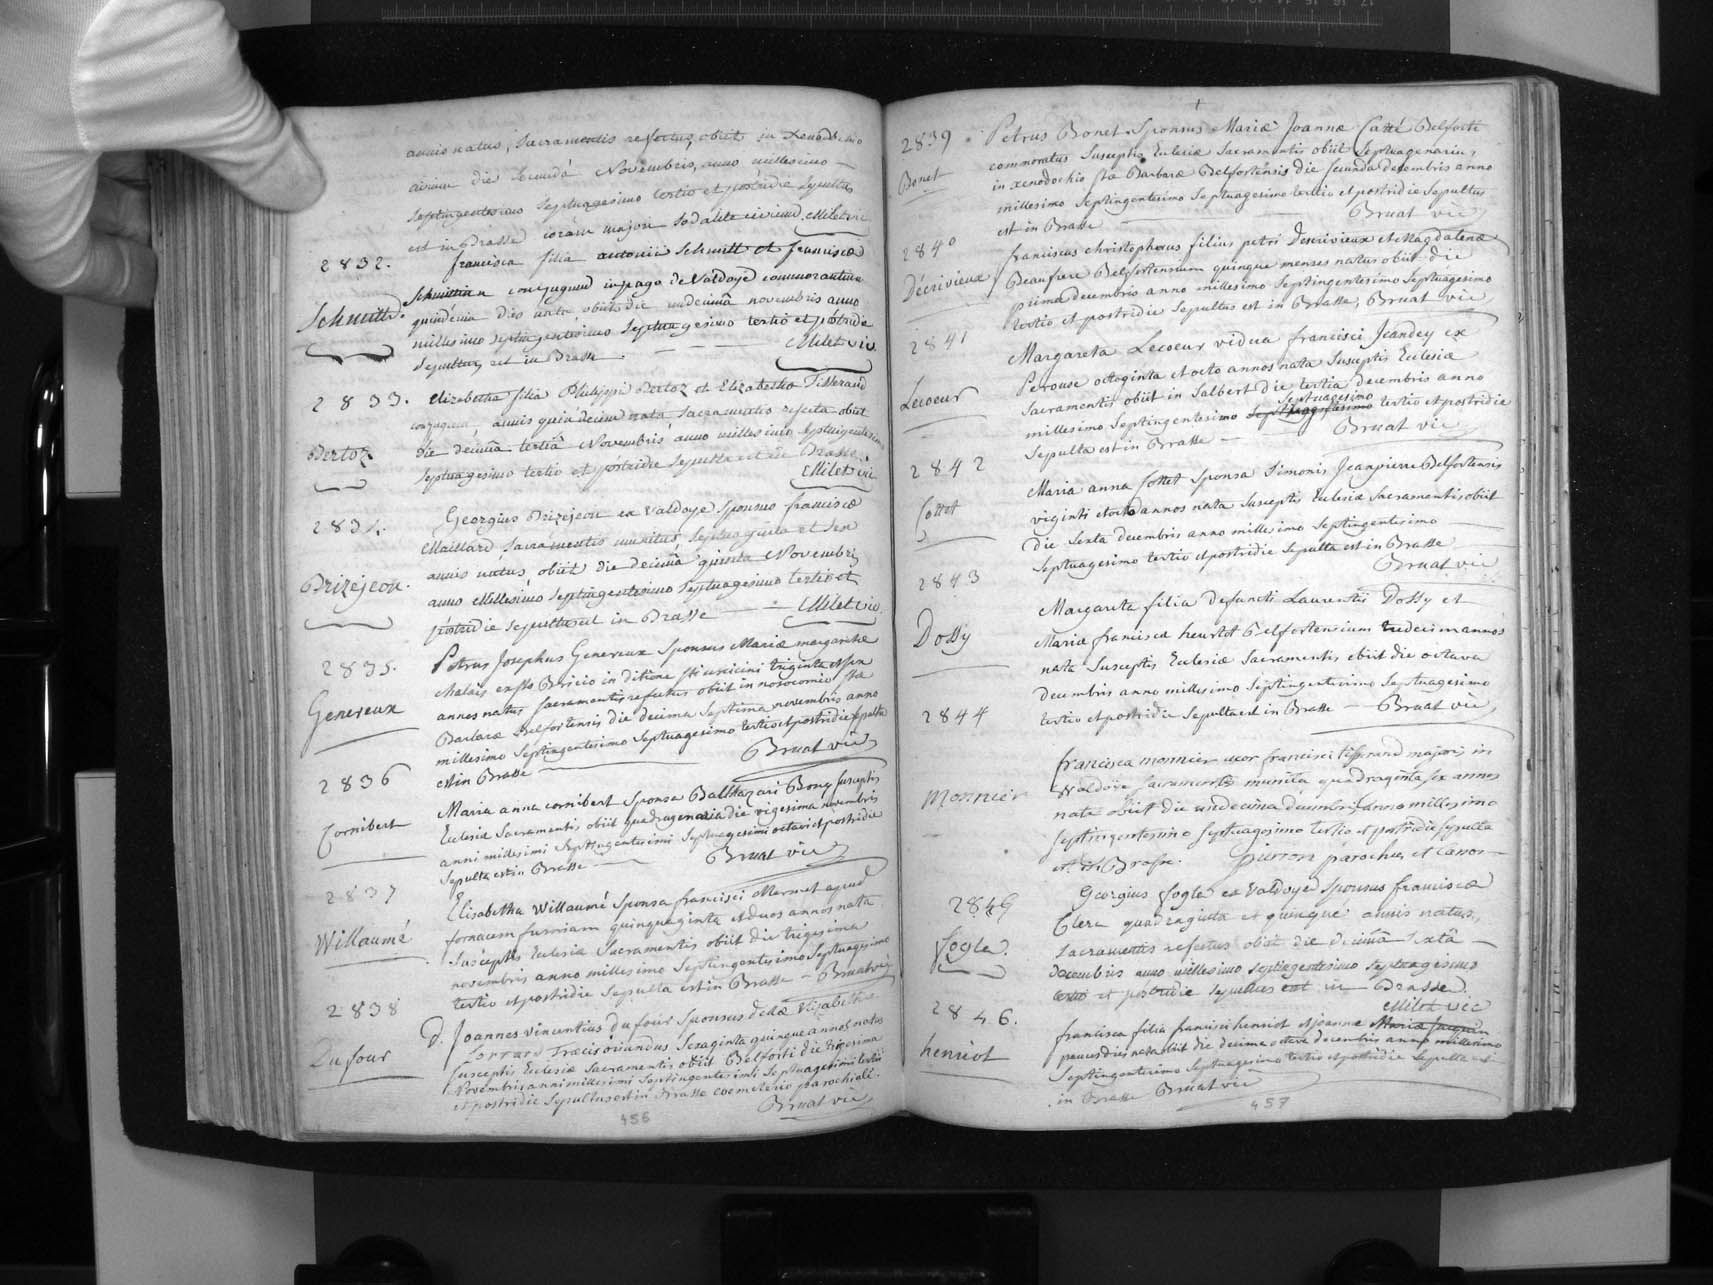 annis natus, Sacramentis refectus, obiit in Xenodochio
die Secundâ Novembris, anno millesimo
Septingentesimo Septuagesimo tertio et postridie Sepultus
est in Brasse coram majori Sodalite civium. Milet vic
2832.
Schmitt.
francisca filia antonii Schmitt et franciscæ
Schmittin conjugum in pago de Valdoye commorantium
quindecim dies nata, obiit die undecimâ novembris anno
millesimo Septingentesimo Septuagesimo tertio et postridie
Sepulta est in Brasse. Milet vic.
2833.
Bertoz
Elizabetha filia Philippi Bertoz et Elizabetha Tisserand
conjugum, annis quindecim nata, Sacramentis refecta obiit
die decimâ tertiâ Novembris anno millesimo Septuigentesimo
Septuagesimo tertio et postridie Sepulta est in Brasse.
Milet vic
2834.
Brizejeon.
Georgius Brizejeon ex Valdoye Sponsus franciscæ
Maillard, Sacramentis munitus Septuaginta et Sex
annis natus, obiit die decimâ quinta Novembris
anno Millesimo Septingentesimo Septuagesimo tertio et
postridie Sepultus est in Brasse — Milet vic
2835.
Genereux
Petrus Josephus Genereux Sponsus Mariæ margaritæ
Malais ex Sto Bricio in ditione triginta et sex
annos natus Sacramentis refectus obiit in nosocomio Sta
Barbaræ Belfortensis die decima Septima novembris anno
millesimo Septingentesimo Septuagesimo tertio et postridie sepultus
est in Brasse Bruat vic
2836
Cornibert
Maria anna cornibert Sponsa Balthazari Bony susceptis
Eclesiæ Sacramentis obiit quadragenaria die vigesima novembris
anni millesimi Septingentesimi Septuagesimi octavi et postridie
Sepulta est in Brasse — Bruat vic
2837
Willaumé
Elisabetha Willaumé Sponsa francisci Mernet apud
fornacem furniam quinquaginta et duos annos nata
Susceptis Eclesiæ Sacramentis obiit die trigesima
novembris anno millesimo Septingentesimo Septuagesimo
tertio et postridie Sepulta est in Brasse — Bruat vic
2838
Dufour
d. Joannes vincentius dufour Sponsus dctæ Elizabethæ
oriundus Sexaginta quinque annos natus
susceptis Eclesiæ Sacramentis obiit Belforti die trigesima
Novembris anni millesimi Septingentesimi Septuagesimi tertii
et postridie Sepultus est in Brasse coemeterio parochiali.
Bruat vic
456
2839
Bonet
Petrus Bonet Sponsus Mariæ Joannæ Catté Belforti
commoratus Susceptis Eclesiæ Sacramentis obiit Septuagenarius
in xenodochio stæ Barbaræ Belfortensis die Secunda decembris anno
millesimo Septingentesimo Septuagesimo tertio et postridie Sepultus
est in Brasse Bruat vic
2840
Décrivieux
franciscus christophorus filius petri Decrivieux et Magdalenæ
Beaufrere Belfortensium quinque menses natus obiit die
prima decembris anno millesimo Septingentesimo Septuagesimo
tertio et postridie Sepultus est in Brasse, Bruat vic
2841
Lecoeur
Margareta Lecoeur vidua francisci Jeandey ex
Perouse octoginta et octo annos nata Susceptis Eclesiæ
Sacramentis obiit in Salbert die tertia decembris anno
millesimo Septingentesimo Septuagesimo tertio et postridie
Sepulta est in Brasse — Bruat vic
2842
Cottet
Maria anna Cottet Sponsa Simonis Jeanpierre Belfortensis
viginti et octo annos nata susceptis Eclesiæ Sacramentis obiit
die Sexta decembris anno millesimo Septingentesimo
Septuagesimo tertio et postridie Sepulta est in Brasse
Bruat vic
2843
Dossy
Margareta filia defuncti Laurentii Dossy et
Mariæ franciscæ heurtot Belfortensium tredecim annos
nata Susceptis Eclesiæ Sacramentis obiit die octava
decembris anno millesimo Septingentesimo Septuagesimo
tertio et postridie Sepulta est in Brasse — Bruat vic
2844
Monnier
francisca monnier uxor francisci tisserand majoris in
Waldoye sacramentis munita, quadraginta sex annos
nata obiit die undecima decembris anno millesimo
septingentesimo septuagesimo tertio et postridie sepulta
est in Brasse. pierson parochus et Canon
2845
fogle.
Georgius fogle ex Valdoye Sponsus franciscæ
Clerc quadraginta et quinque annis natus,
Sacramentis refectus obiit die decimâ Sextâ —
decembris anno millesimo septingentesimo septuagesimo
tertio et postridie Sepultus est in Brasse.
Milet vic
2846.
henriot
francisca filia francisci henriot et jeannæ Mariæ Jacquin
paucos dies nata obiit die decima octava decembris anno millesimo
Septingentesimo Septuagesimo tertio et postridie Sepulta est
in Brasse Bruat vic
457